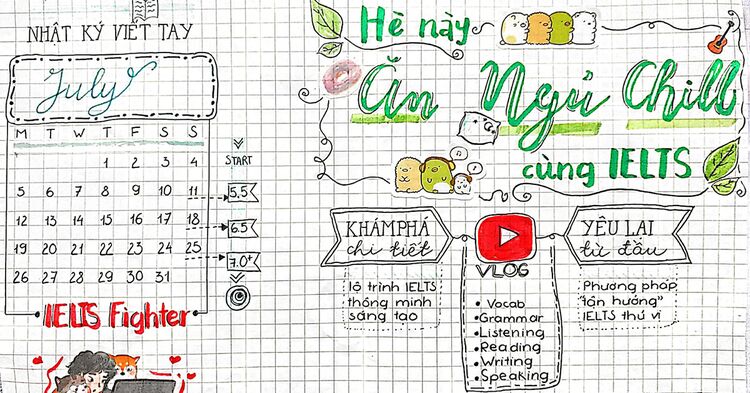 NHẬT KÝ VIẾT TAY
July
M T W T F S S
1 2 3 4
5 6 7 8 9 10 11
12 13 14 15 16 17 18
19 20 21 22 23 24 25
26 27 28 29 30 31
START
5.5
6.5
7.0+
IELTS Fighter
Hè này
Ăn Ngủ Chill
cùng IELTS
KHÁM PHÁ
chi tiết
lộ trình IELTS
thông minh
sáng tạo
VLOG
• Vocab
• Grammar
• Listening
• Reading
• Writing
• Speaking
YÊU LẠI
từ đầu
Phương pháp
"tận hưởng"
IELTS thú vị